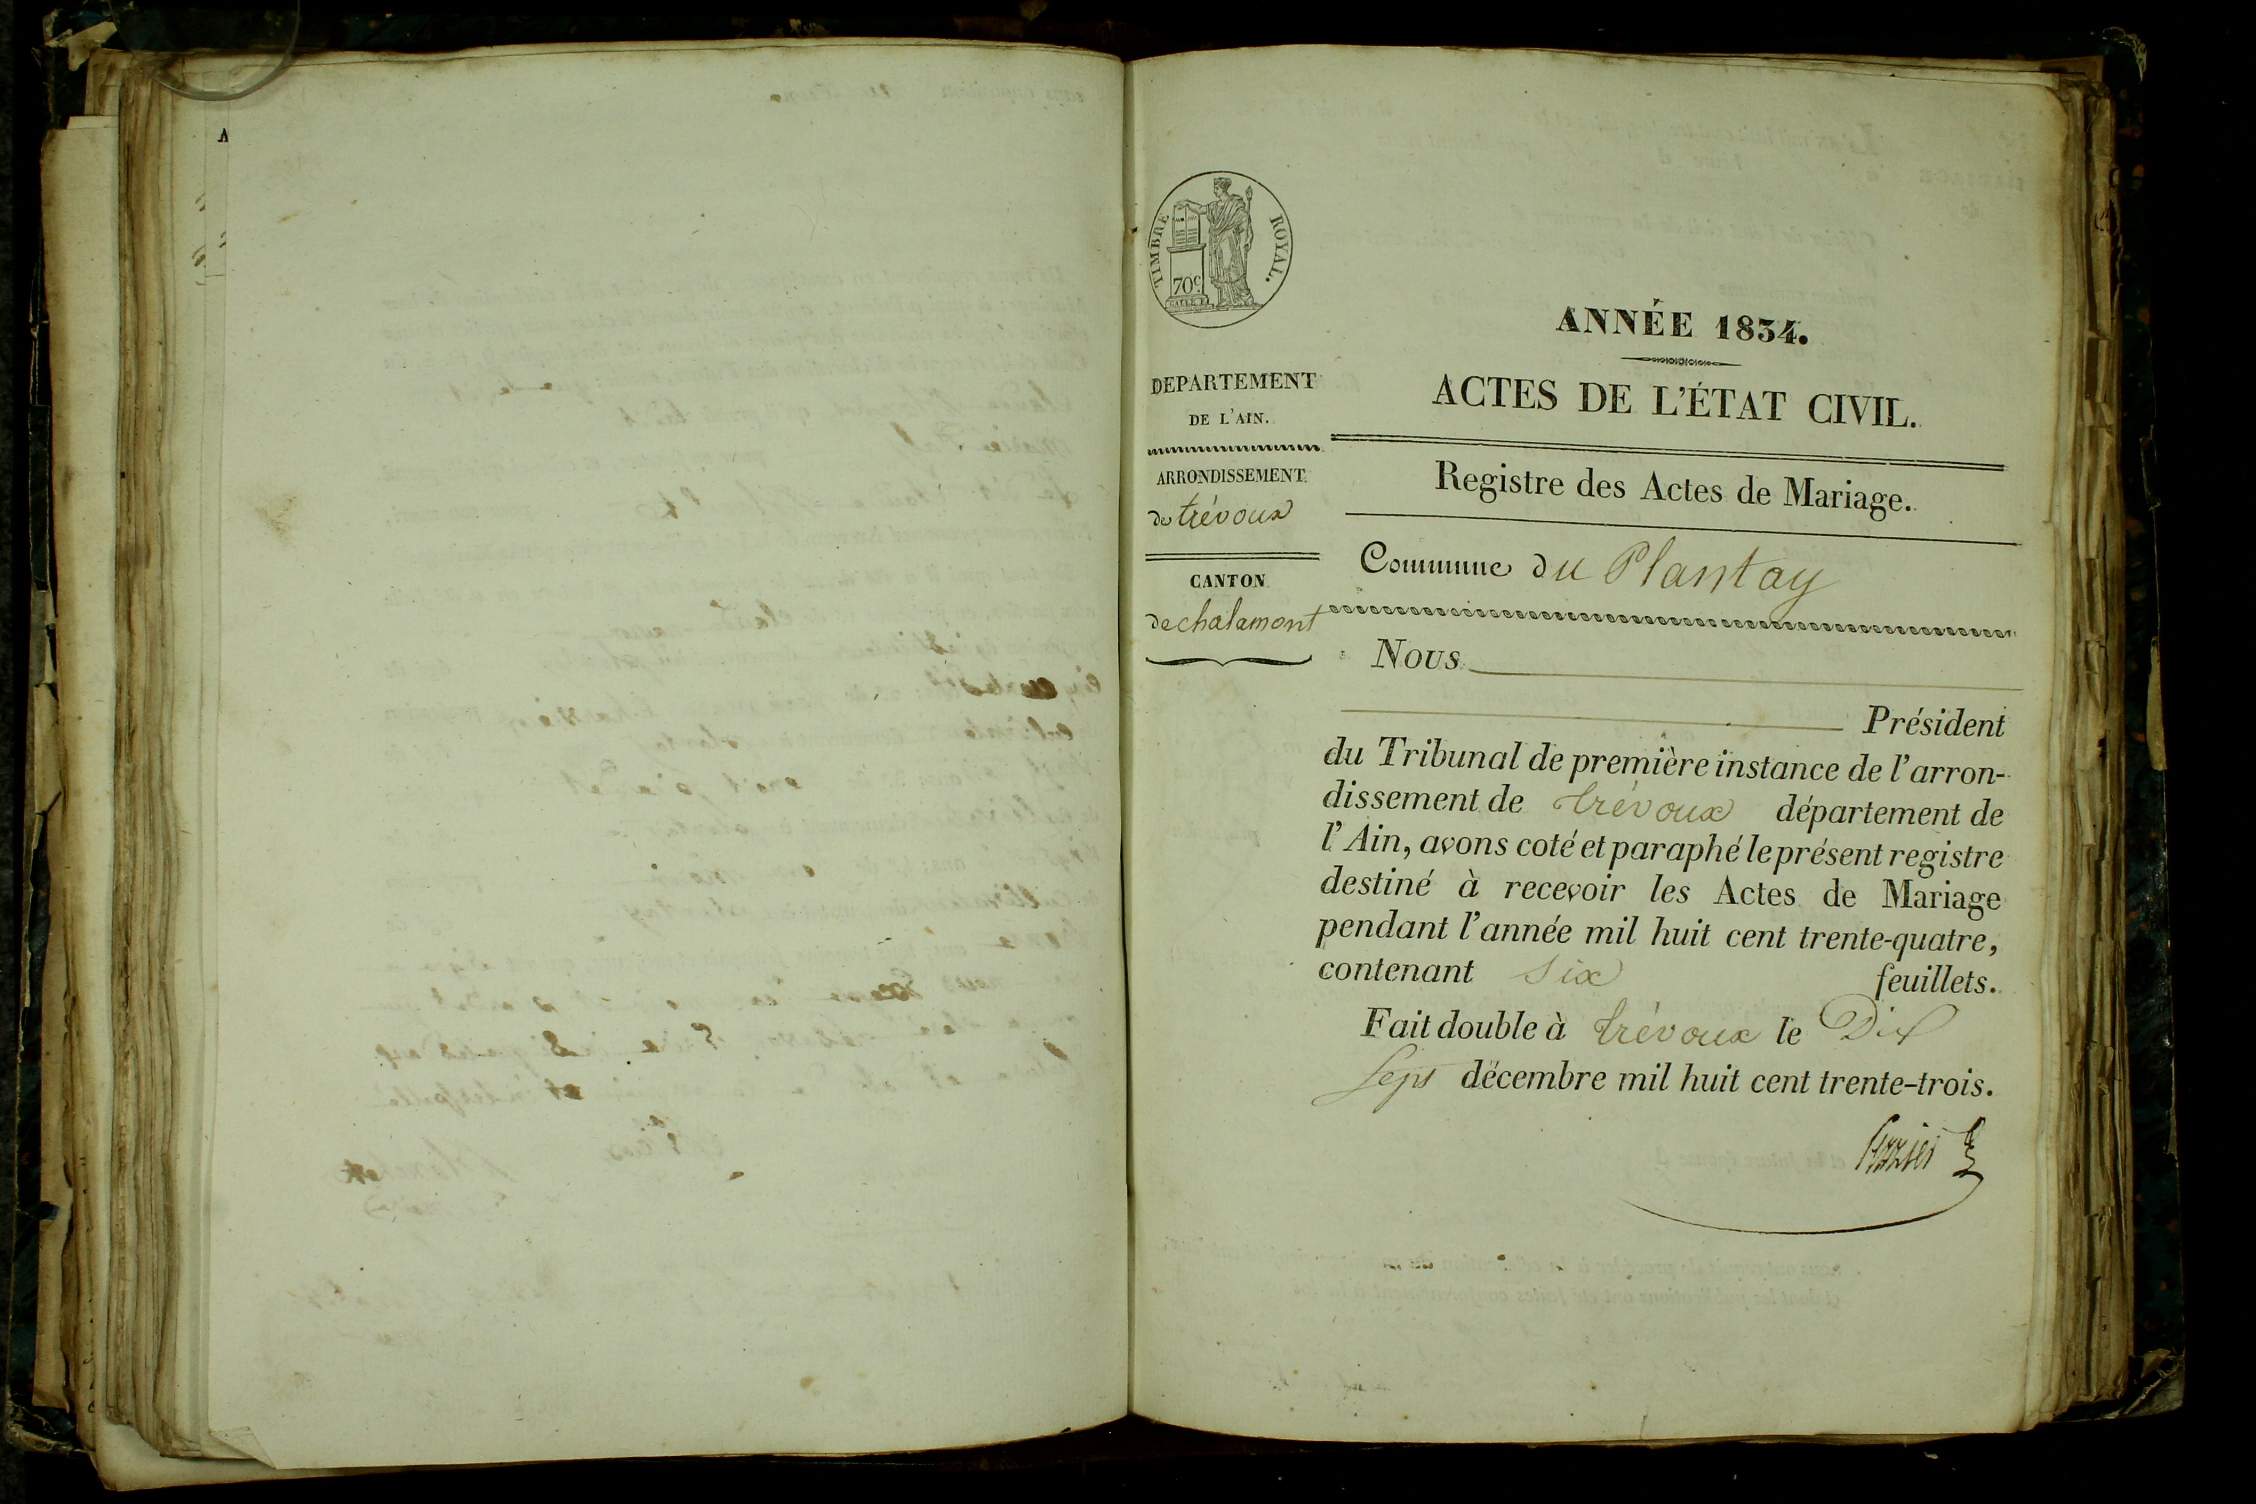 A
TIMBRE ROYAL.
70c
DEPARTEMENT
DE L'AIN.
ARRONDISSEMENT
de trévoux
CANTON
de chalamont
ANNÉE 1834.
ACTES DE L'ÉTAT CIVIL.
Registre des Actes de Mariage.
Commune du Plantay
Nous
Président
du Tribunal de première instance de l'arron-
dissement de trévoux département de
l'Ain, avons coté et paraphé le présent registre
destiné à recevoir les Actes de Mariage
pendant l'année mil huit cent trente-quatre,
contenant six feuillets.
Fait double à trévoux le Dix
Sept décembre mil huit cent trente-trois.